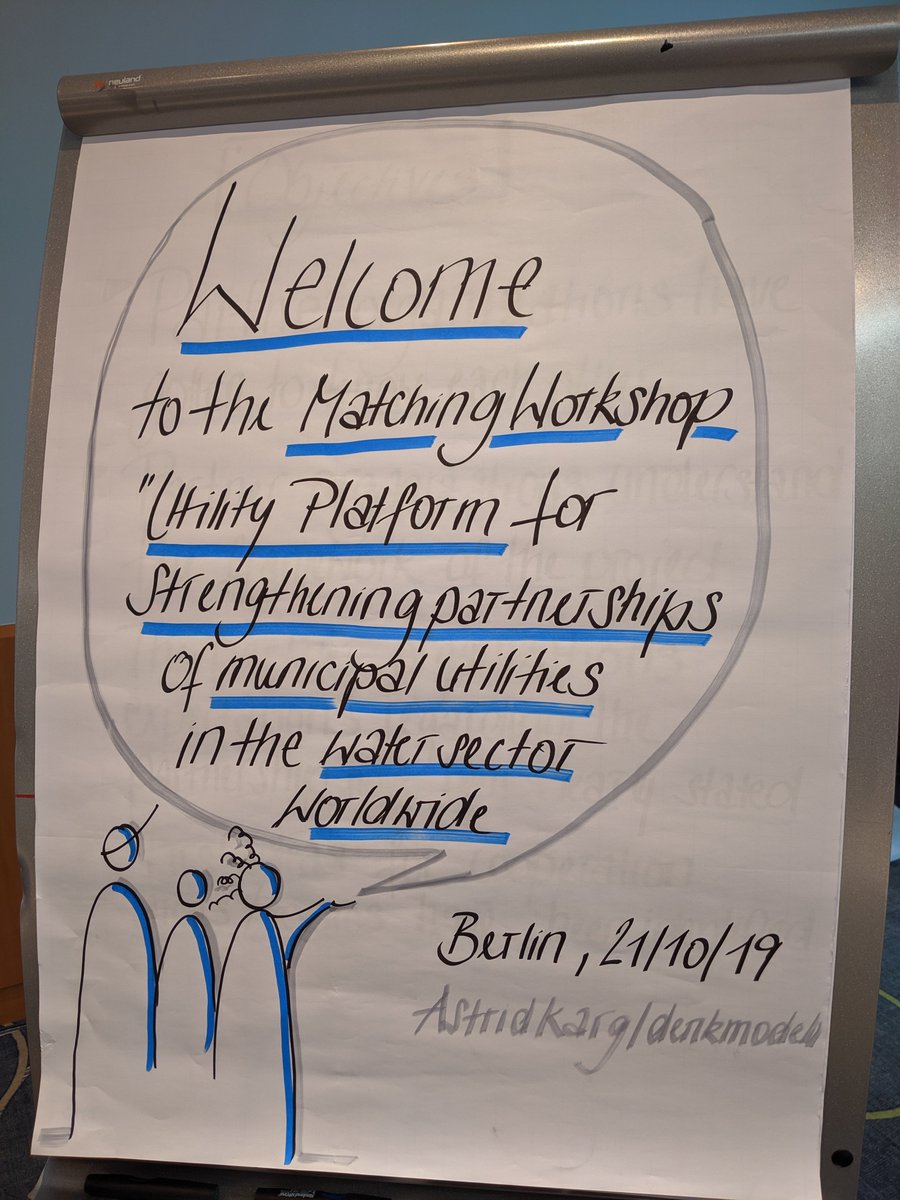 neuland
Welcome
to the Matching Workshop
"Utility Platform for
Strengthening partnerships
Of municipal utilities
in the water sector
worldwide
Berlin, 21/10/19
Astrid Karg/denkmodell